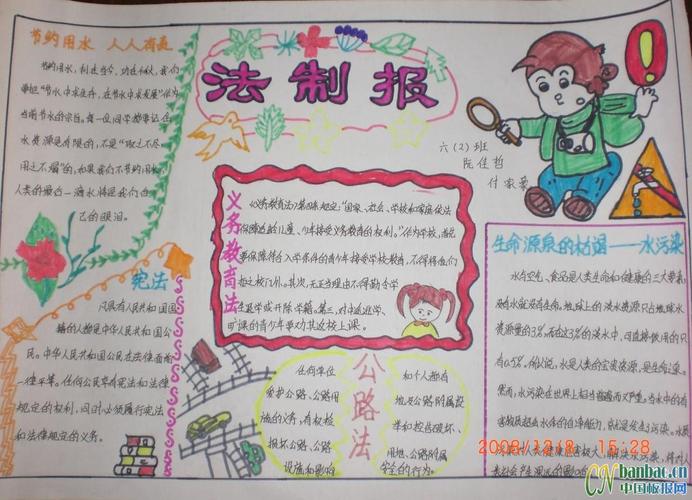 节约用水 人人有责
节约用水，利在当今，功在千秋，我们
要把"节水中求生存，在节水中求发展"作为
当前节水的宗旨。每一位同学都要认识
水资源是有限的，不是"取之不尽
用之不竭"的，如果我们不节约用水
人类的最后一滴水将是我们自
己的眼泪。
法制报
六(2)班
阮佳哲
付
义务教育法
《义务教育法》第四条规定："国家、社会、学校和家庭依法
保障适龄儿童、少年接受义务教育的权利。"作为学校，首先
要保障符合入学条件的青少年接受学校教育，不得将他们
拒之校门外。其次，无正当理由不得勒令学
生退学或开除学籍。第三，对中途退学、
旷课的青少年要劝其返校上课。
宪法
凡具有人民共和国国
籍的人都是中华人民共和国公
民。中华人民共和国公民在法律面前
一律平等。任何公民享有宪法和法律
规定的权利，同时必须履行宪法
和法律规定的义务。
公路法
任何单位
爱护公路、公路用
地的义务，有权检
损坏公路、公路
设施和影响
和个人都有
地及公路附属设
举和控告破坏
用地、公路附属
安全的行为。
生命源泉的枯竭——水污染
水与空气、食品是人类生命和健康的三大要素，
没有水就没有生命。地球上的淡水资源只占地球水
资源量的3%，而在这3%的淡水中，可直接饮用的只
有0.5%。所以说，水是人类的宝贵资源，是生命之源。
然而，水污染在世界上相当普遍而又严重。当水中的有
害物质超出水体的自净能力，就是发生了污染。水
2008/12/8 15:28
CN banbao.cn
中国板报网